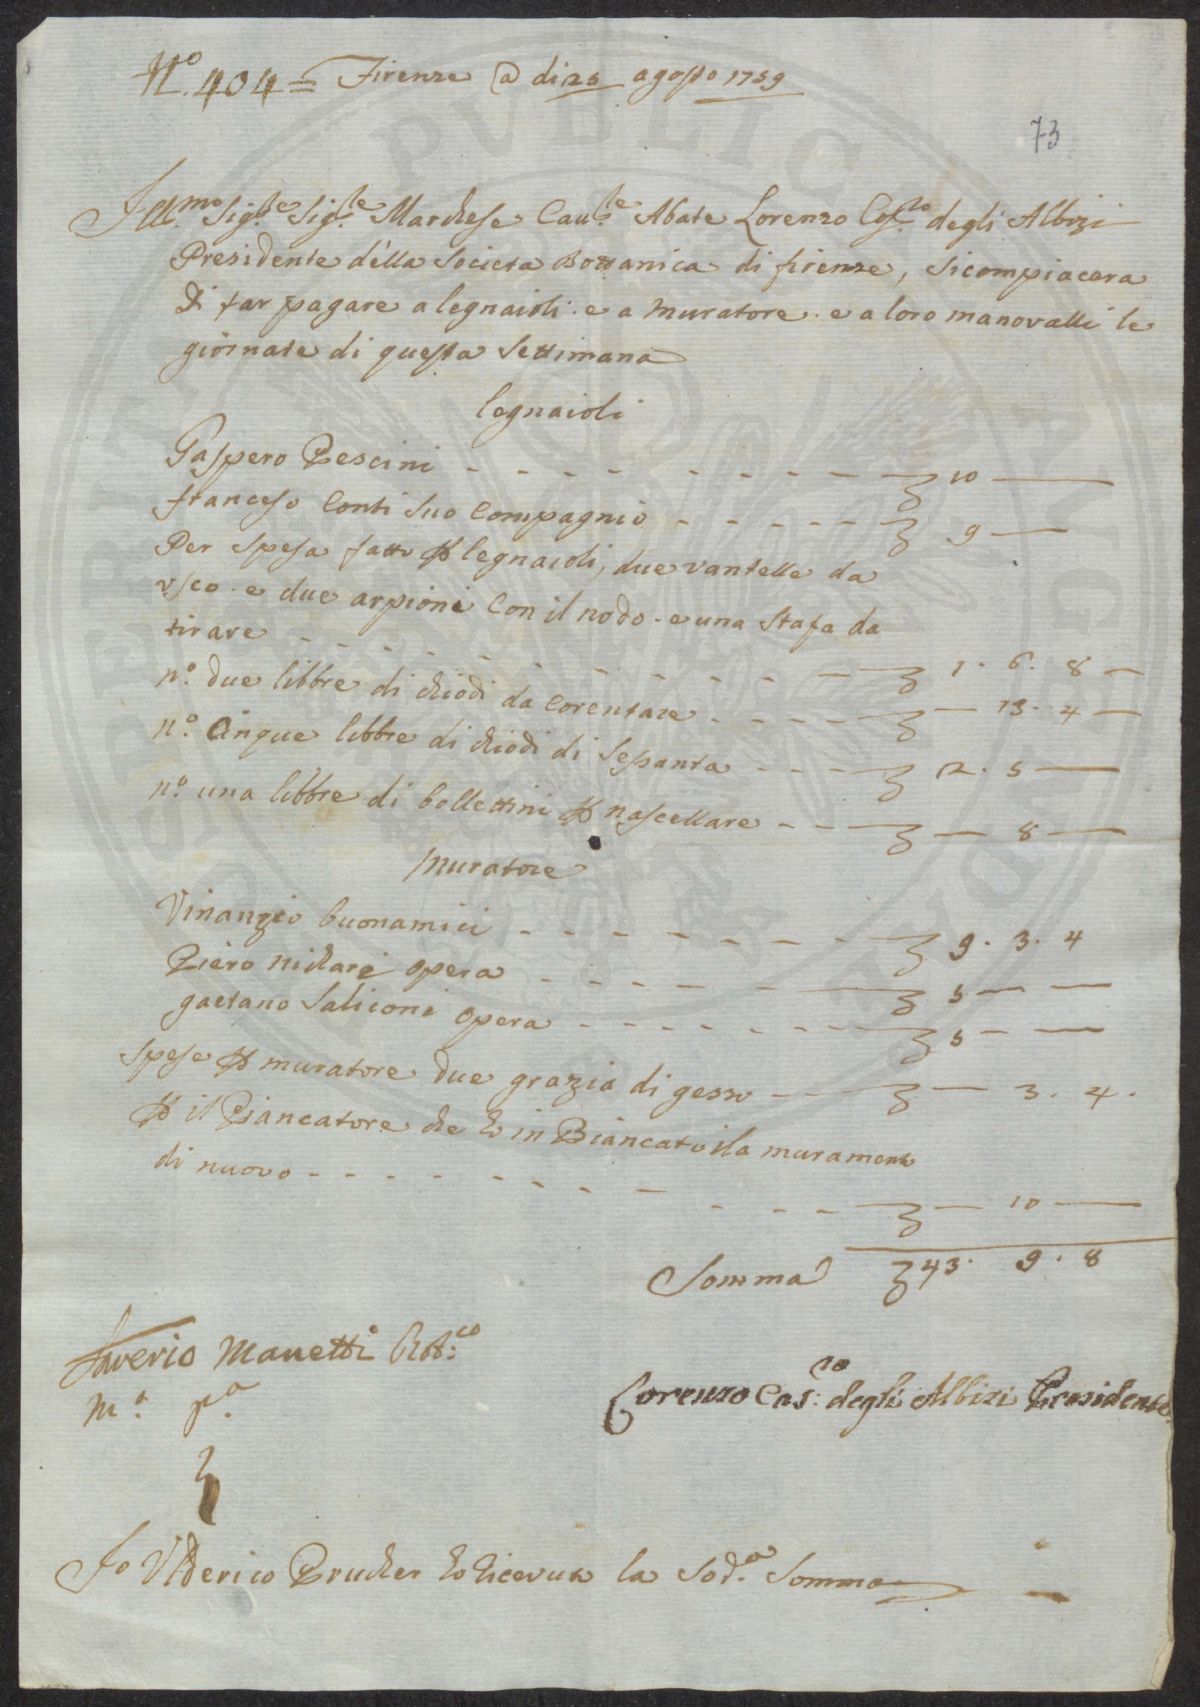 N.o 404 = Firenze @ di 25 agosto 1759
73
Ill.mo Sig.re Sig.re Marchese Cau.re Abate Lorenzo Cas.no degli Albizi
Presidente della Societa Bottanica di firenze, si compiacera
di far pagare a legnaioli e a muratore e a loro manovalli le
giornate di questa settimana
legnaioli
Gaspero Pescini - - - - - - - - - 10 —
francesco Conti suo Compagnio - - - - - 9 —
Per spesa fatto p legnaioli, due vantelle da
usco e due arpioni Con il nodo e una stafa da
tirare - - - - - - - - - 1. 6. 8 —
n.o due libbre di chiodi da Corentare - - - - — 13. 4 —
n.o Cinque libbre di chiodi di sesanta - - - 2. 5 —
n.o una libbre di bollettini p nascellare - - — 8 —
Muratore
Vinanzio buonamici - - - - - - - - 9. 3. 4
Piero nichari opera - - - - - - 5 — —
gaetano Saliconi opera - - - - - - - 5 — —
Spese p muratore due grazia di gesso - - - — 3. 4.
p il Biancatore che ho in Biancato ila muramento
di nuovo - - - - - - - - - — 10 —
Somma 43. 9. 8
Saverio Manetti
M.o p.a
Lorenzo Cas.no degli Albizi Presidente
Io Ulderico Prucher ho riceuto la Sod.a Somma